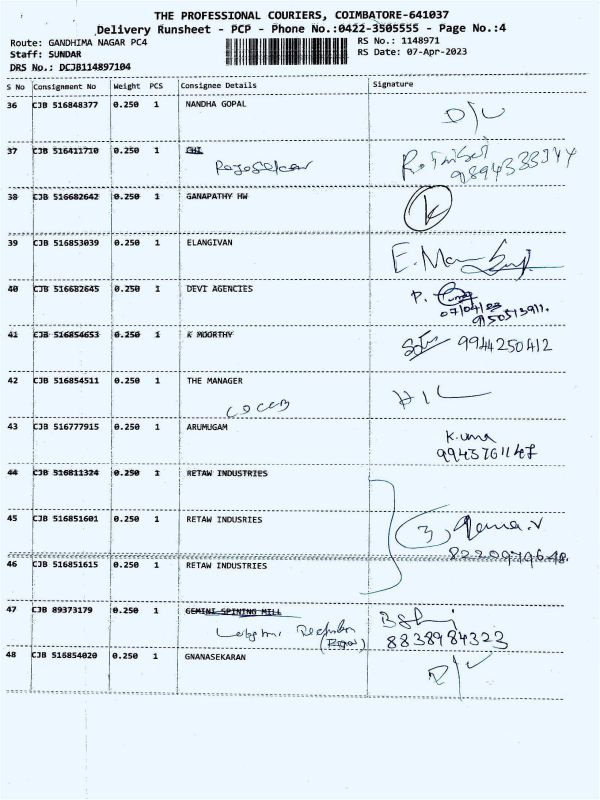 THE PROFESSIONAL COURIERS, COIMBATORE-641037
Delivery Runsheet - PCP - Phone No.:0422-3505555 - Page No.:4
Route: GANDHIMA NAGAR PC4 RS No.: 1148971
Staff: SUNDAR RS Date: 07-Apr-2023
DRS No.: DCJB114897104
S No Consignment No Weight PCS Consignee Details Signature
36 CJB 516848377 0.250 1 NANDHA GOPAL
37 CJB 516411710 0.250 1 CHI
Rajasekar
38 CJB 516682642 0.250 1 GANAPATHY HW
39 CJB 516853039 0.250 1 ELANGIVAN E.
40 CJB 516682645 0.250 1 DEVI AGENCIES P.
07/04/23
41 CJB 516854653 0.250 1 K MOORTHY 9944250412
42 CJB 516854511 0.250 1 THE MANAGER
43 CJB 516777915 0.250 1 ARUMUGAM K.uma
44 CJB 516811324 0.250 1 RETAW INDUSTRIES
45 CJB 516851601 0.250 1 RETAW INDUSRIES
46 CJB 516851615 0.250 1 RETAW INDUSTRIES
47 CJB 89373179 0.250 1 GEMINI SPINING MILL
8838984323
48 CJB 516854020 0.250 1 GNANASEKARAN